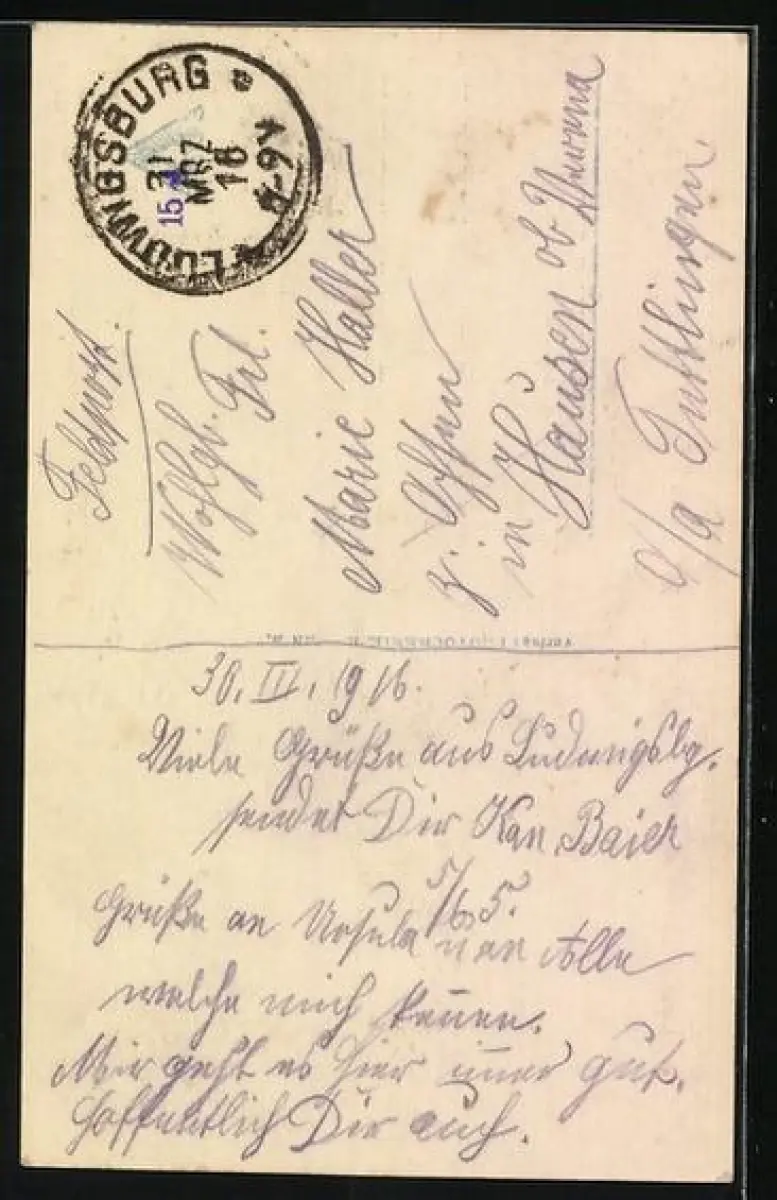 LUDWIGSBURG
31
MRZ
16
8-9V
15
Feldpost.
Wohlgb. Frl.
Marie Haller
z. Ochsen
in Hausen ob Verena
o/a Tuttlingen
30. III. 1916.
Viele Grüße aus Ludwigsbg.
sendet Dir Kan. Baier
5/65.
Grüße an Ursula u an Alle
welche mich kennen.
Mir geht es hier immer gut.
Hoffentlich Dir auch.